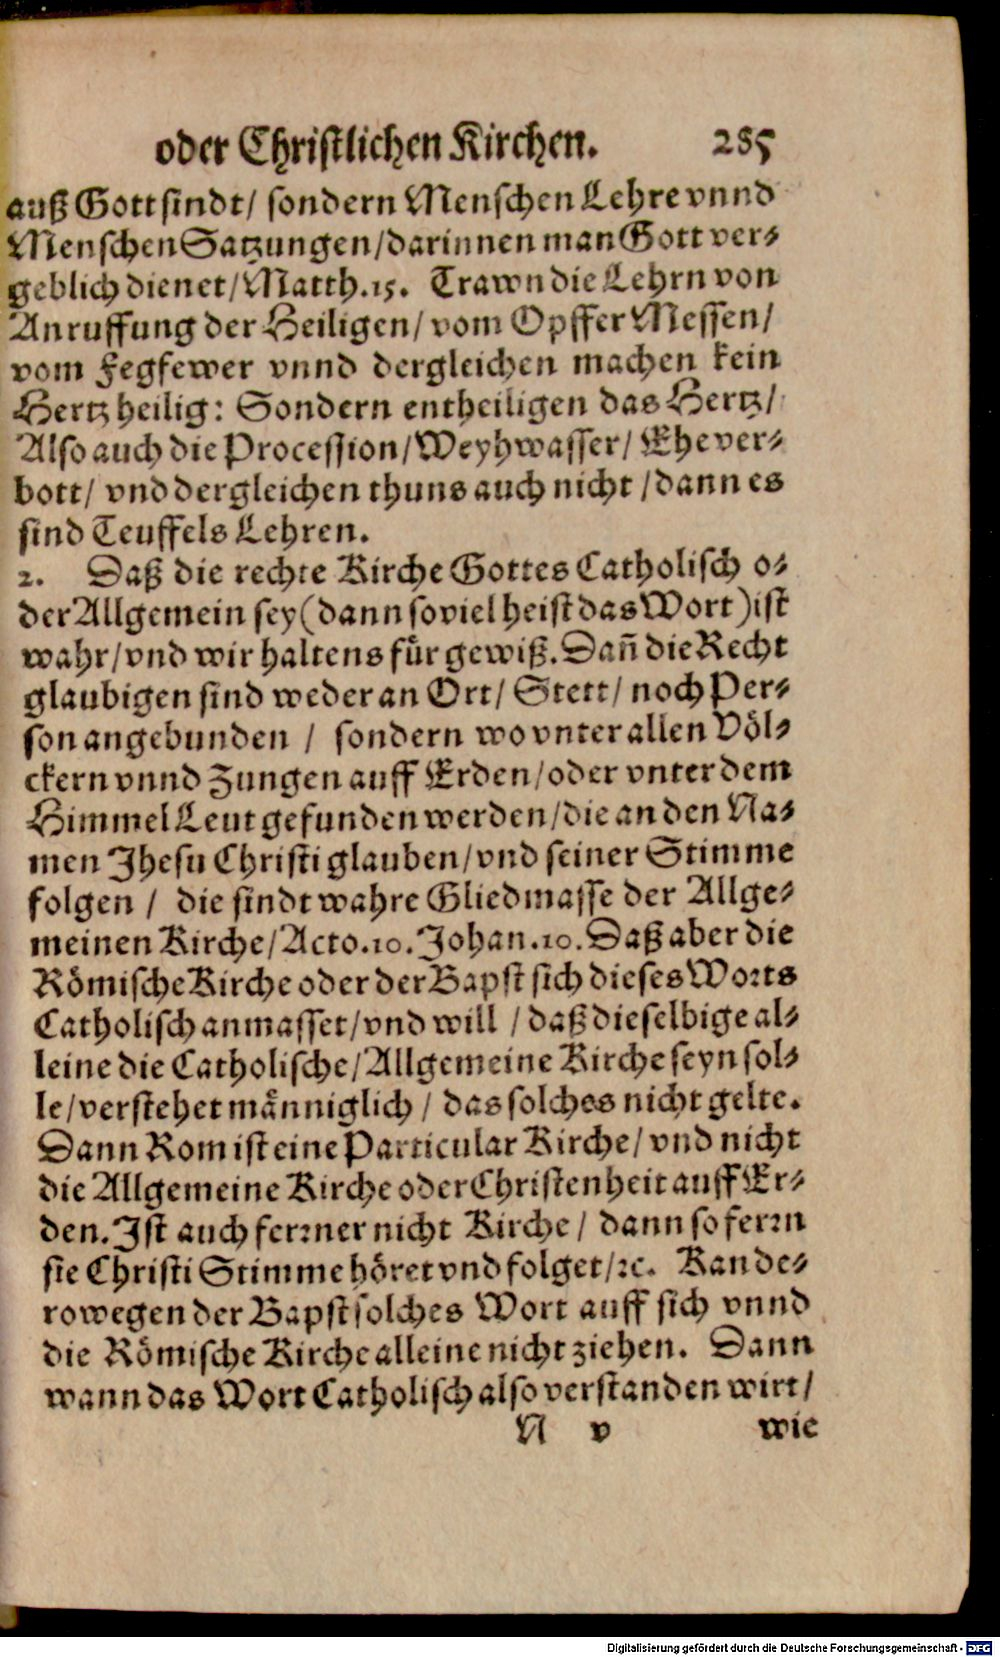 oder Christlichen Kirchen. 285
auß Gott sindt/ sondern Menschen Lehre vnnd
Menschen Satzungen/darinnen man Gott ver-
geblich dienet/Matth.15. Trawn die Lehrn von
Anruffung der Heiligen/ vom Opffer Messen/
vom Fegfewer vnnd dergleichen machen kein
Hertz heilig: Sondern entheiligen das Hertz/
Also auch die Procession/Weyhwasser/ Ehever-
bott/ vnd dergleichen thuns auch nicht /dann es
sind Teuffels Lehren.
2. Daß die rechte Kirche Gottes Catholisch o-
der Allgemein sey (dann soviel heist das Wort) ist
wahr/vnd wir haltens für gewiß. Dañ die Recht
glaubigen sind weder an Ort/ Stett/ noch Per-
son angebunden / sondern wo vnter allen Völ-
ckern vnnd Zungen auff Erden/oder vnter dem
Himmel Leut gefunden werden/die an den Na-
men Jhesu Christi glauben/vnd seiner Stimme
folgen / die sindt wahre Gliedmasse der Allge-
meinen Kirche/Acto.10. Johan.10. Daß aber die
Römische Kirche oder der Bapst sich dieses Worts
Catholisch anmasset/vnd will / daß dieselbige al-
leine die Catholische/Allgemeine Kirche seyn sol-
le/verstehet männiglich / das solches nicht gelte.
Dann Rom ist eine Particular Kirche/ vnd nicht
die Allgemeine Kirche oder Christenheit auff Er-
den. Jst auch ferꝛner nicht Kirche / dann so ferꝛn
sie Christi Stimme höret vnd folget/ꝛc. Kan de-
rowegen der Bapst solches Wort auff sich vnnd
die Römische Kirche alleine nicht ziehen. Dann
wann das Wort Catholisch also verstanden wirt/
N v wie
Digitalisierung gefördert durch die Deutsche Forschungsgemeinschaft - DFG